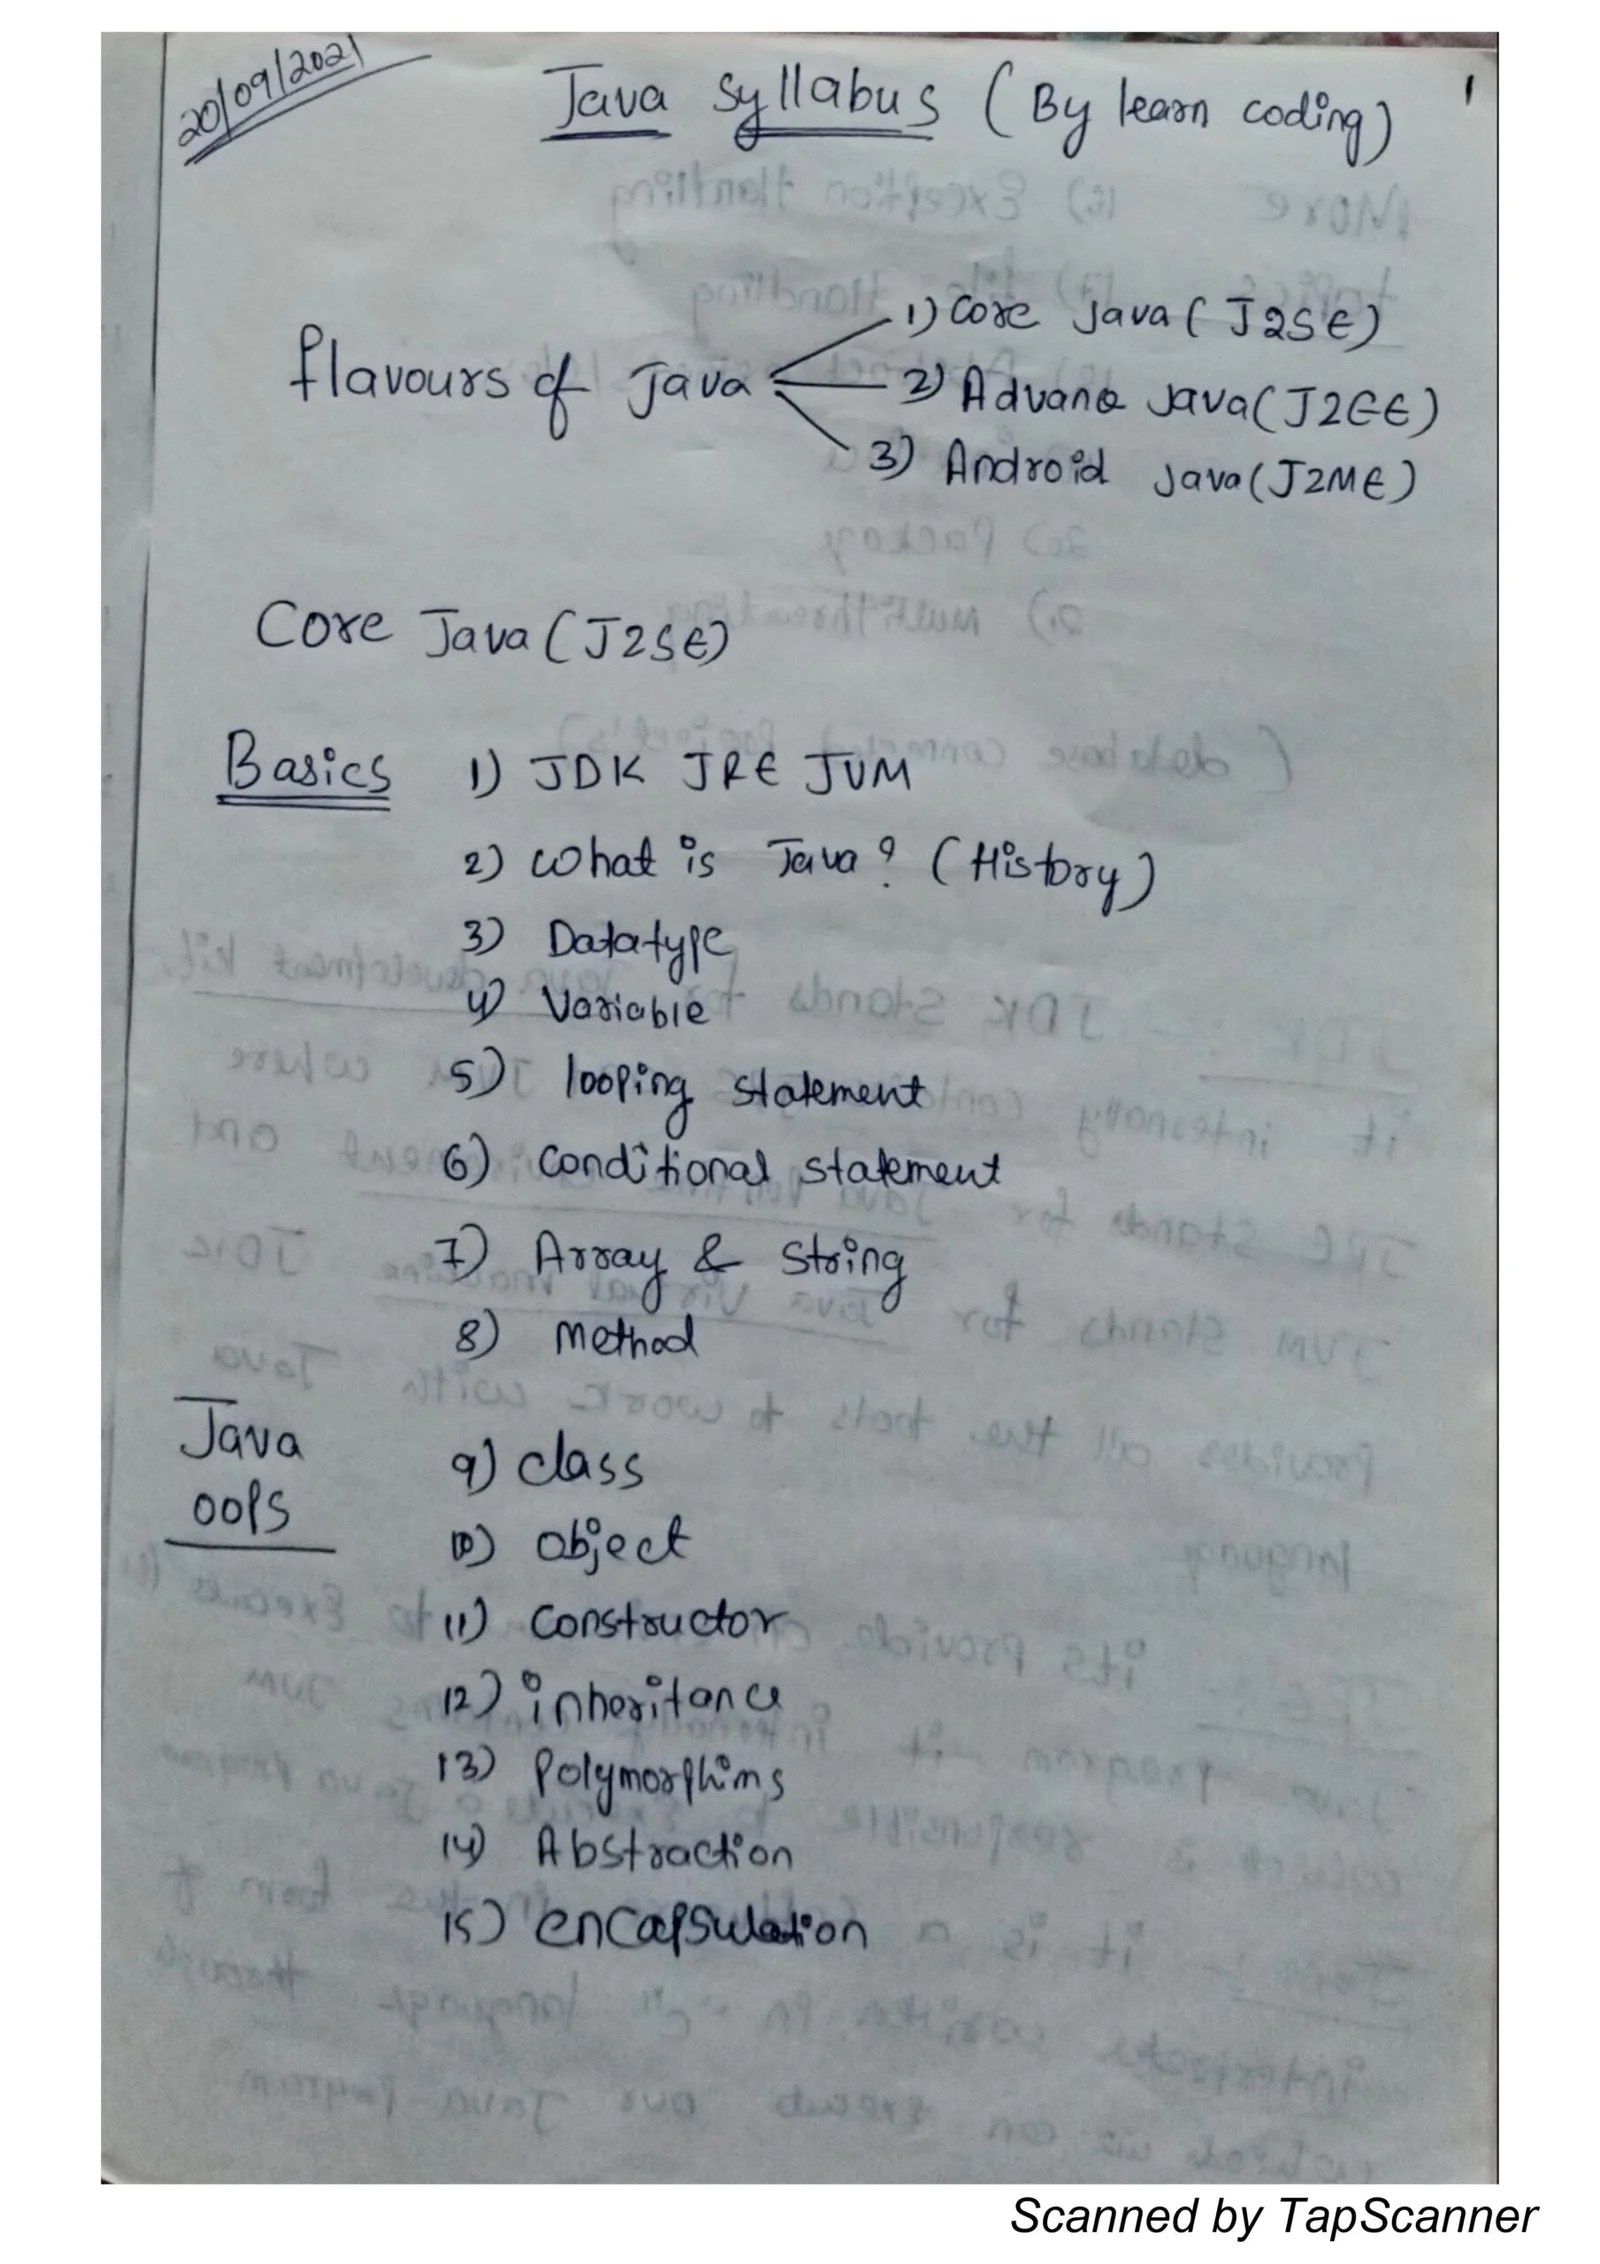 20/09/2021
Java Syllabus (By learn coding)
1
flavours of Java
1) Core Java (J2SE)
2) Advance Java (J2EE)
3) Android Java (J2ME)
Core Java (J2SE)
Basics
1) JDK JRE JVM
2) What is Java? (History)
3) Datatype
4) Variable
5) looping statement
6) Conditional statement
7) Array & string
8) Method
Java
OOPS
9) class
10) object
11) Constructor
12) inheritance
13) Polymorphims
14) Abstraction
15) encapsulation
Scanned by TapScanner